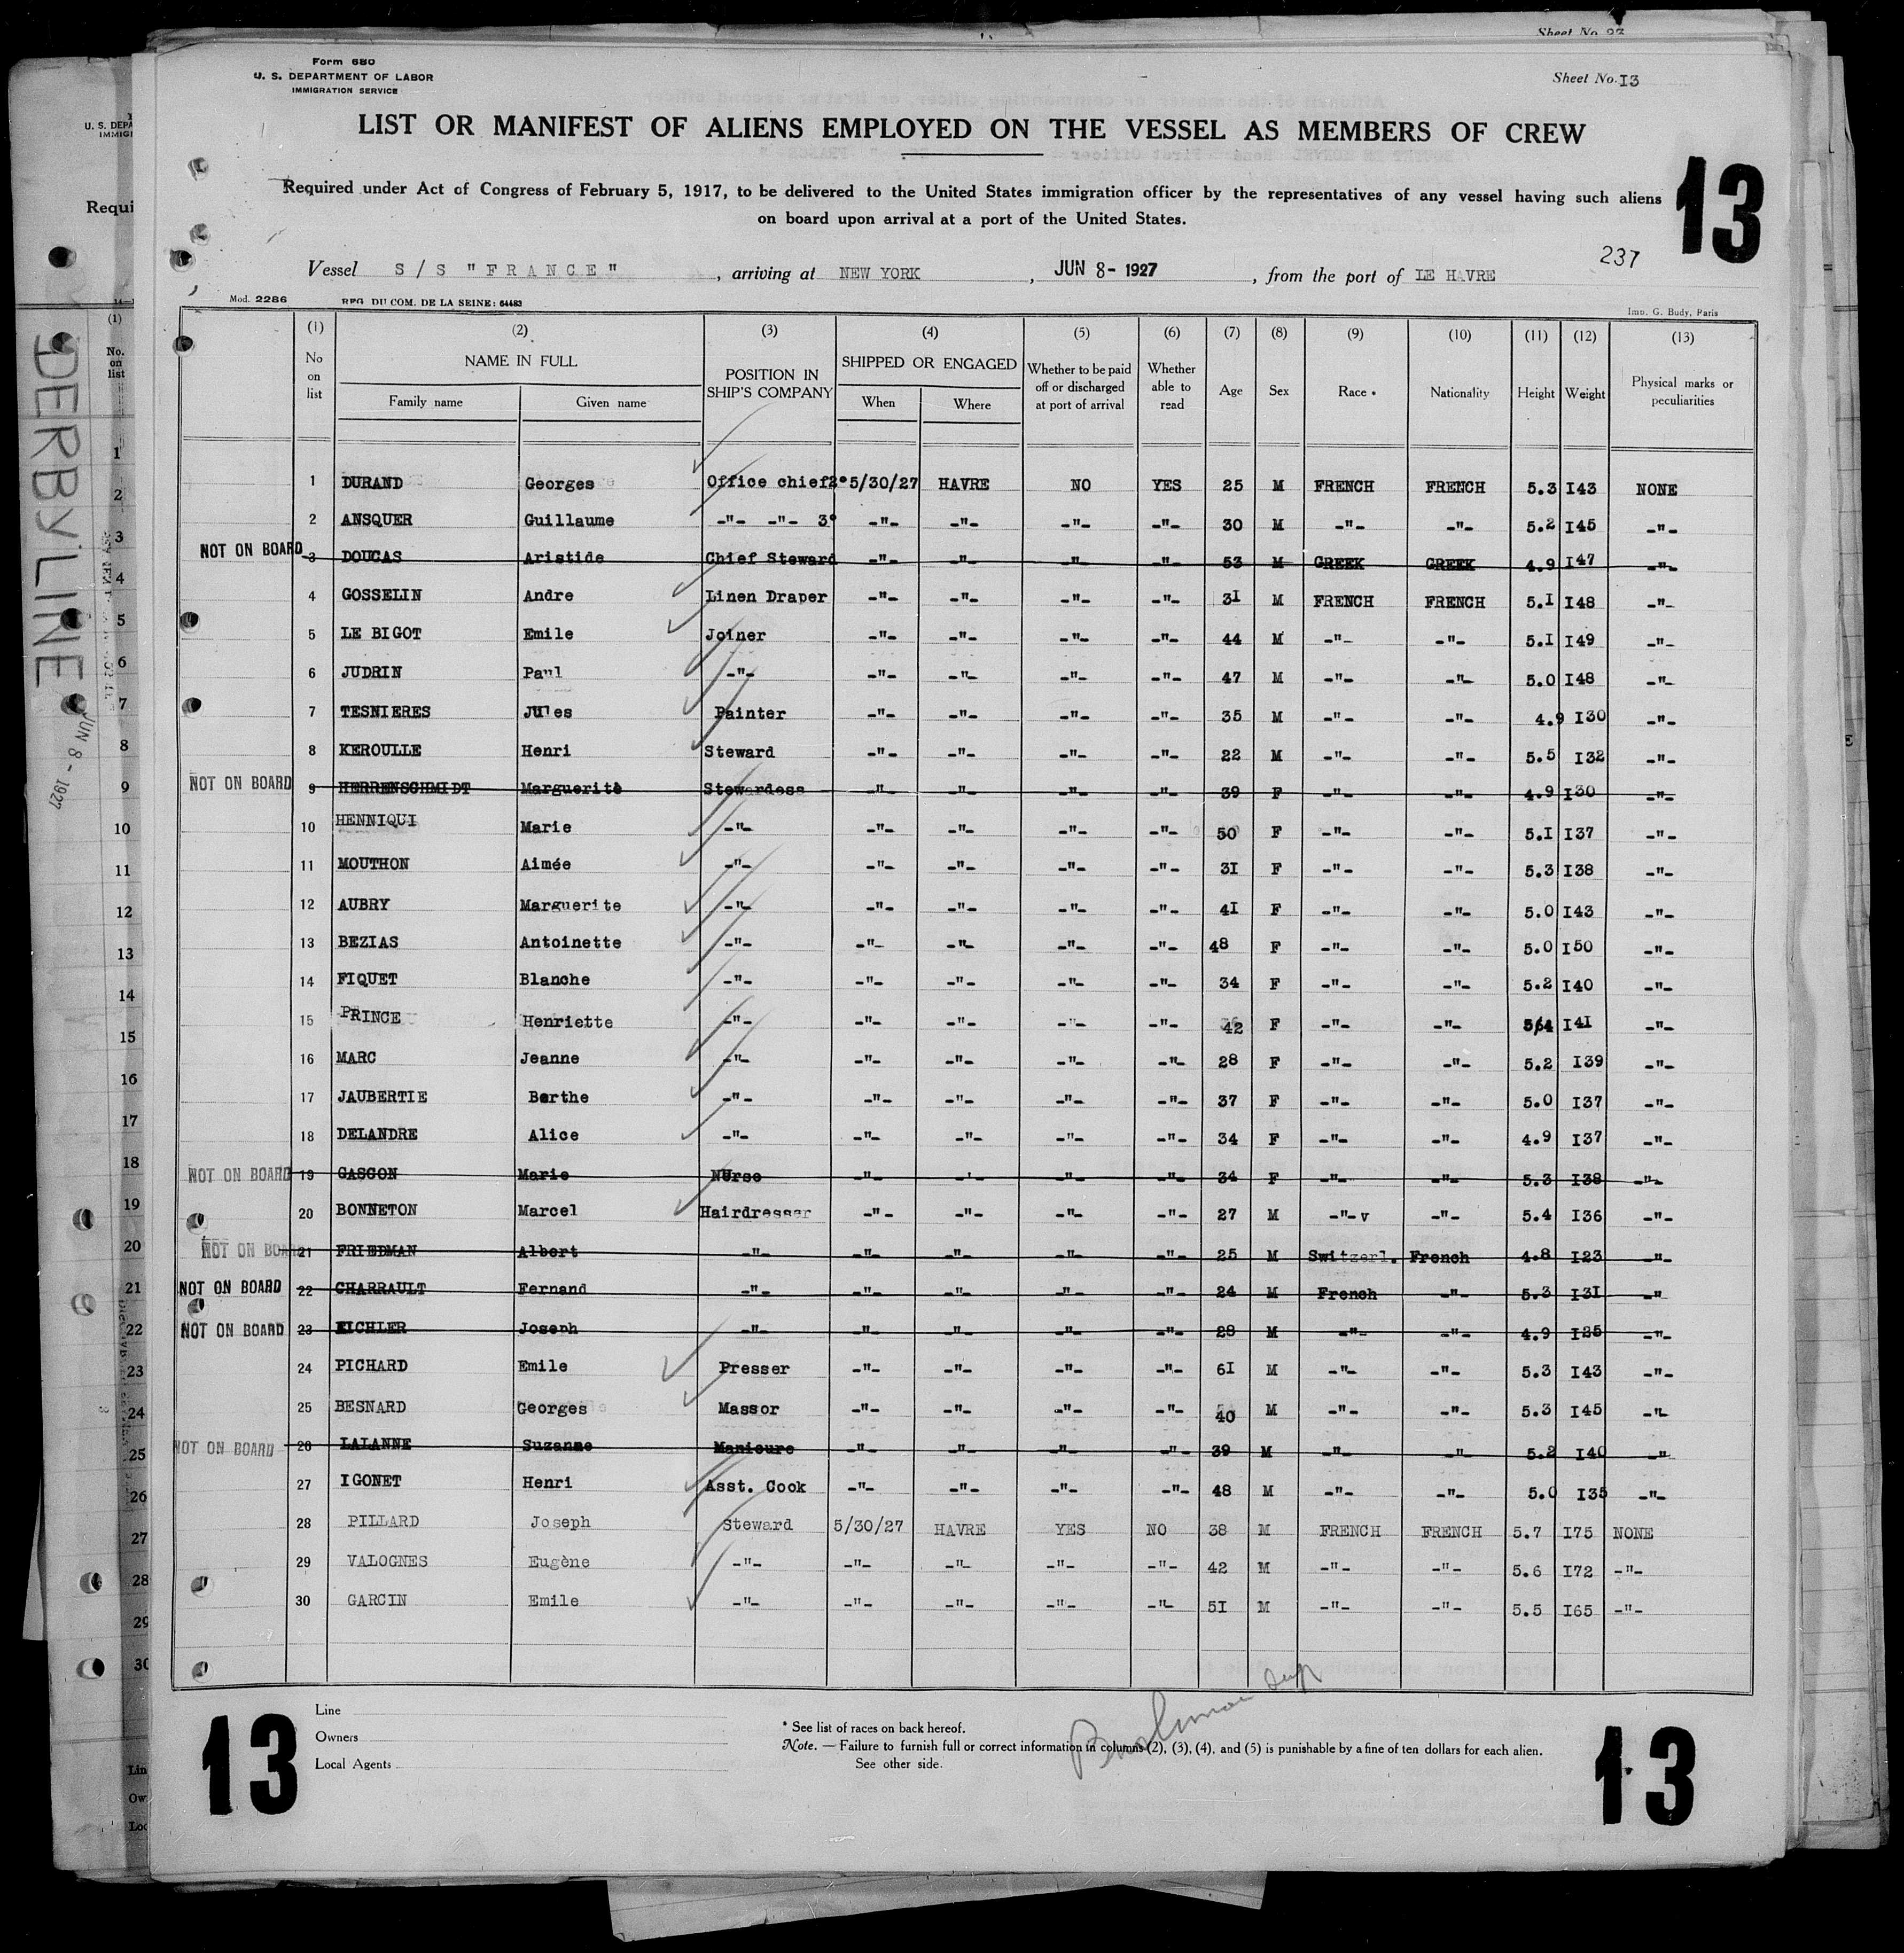 Sheet No. 27
Form 680
U. S. DEPARTMENT OF LABOR
IMMIGRATION SERVICE
Sheet No. I3
LIST OR MANIFEST OF ALIENS EMPLOYED ON THE VESSEL AS MEMBERS OF CREW
Required under Act of Congress of February 5, 1917, to be delivered to the United States immigration officer by the representatives of any vessel having such aliens
on board upon arrival at a port of the United States.
13
237
Vessel S/S "FRANCE", arriving at NEW YORK, JUN 8- 1927, from the port of LE HAVRE
Mod. 2286 REG. DU COM. DE LA SEINE: 64483 Imp. G. Budy, Paris
(1) (2) (3) (4) (5) (6) (7) (8) (9) (10) (11) (12) (13)
No on list NAME IN FULL Family name Given name POSITION IN SHIP'S COMPANY SHIPPED OR ENGAGED When Where Whether to be paid off or discharged at port of arrival Whether able to read Age Sex Race * Nationality Height Weight Physical marks or peculiarities
1 DURAND Georges Office chief2° 5/30/27 HAVRE NO YES 25 M FRENCH FRENCH 5.3 I43 NONE
2 ANSQUER Guillaume -"- -"- 3° -"- -"- -"- -"- 30 M -"- -"- 5.2 I45 -"-
NOT ON BOARD 3 DOUCAS Aristide Chief Steward -"- -"- -"- -"- 53 M GREEK GREEK 4.9 I47 -"-
4 GOSSELIN Andre Linen Draper -"- -"- -"- -"- 3I M FRENCH FRENCH 5.I I48 -"-
5 LE BIGOT Emile Joiner -"- -"- -"- -"- 44 M -"- -"- 5.I I49 -"-
6 JUDRIN Paul -"- -"- -"- -"- -"- 47 M -"- -"- 5.0 I48 -"-
7 TESNIERES Jules Painter -"- -"- -"- -"- 35 M -"- -"- 4.9 I30 -"-
8 KEROULLE Henri Steward -"- -"- -"- -"- 22 M -"- -"- 5.5 I32 -"-
NOT ON BOARD 9 HERRENSCHMIDT Marguerite Stewardess -"- -"- -"- -"- 39 F -"- -"- 4.9 I30 -"-
10 HENNIQUI Marie -"- -"- -"- -"- -"- 50 F -"- -"- 5.I I37 -"-
11 MOUTHON Aimée -"- -"- -"- -"- -"- 3I F -"- -"- 5.3 I38 -"-
12 AUBRY Marguerite -"- -"- -"- -"- -"- 4I F -"- -"- 5.0 I43 -"-
13 BEZIAS Antoinette -"- -"- -"- -"- -"- 48 F -"- -"- 5.0 I50 -"-
14 FIQUET Blanche -"- -"- -"- -"- -"- 34 F -"- -"- 5.2 I40 -"-
15 PRINCE Henriette -"- -"- -"- -"- -"- 42 F -"- -"- I4I -"-
16 MARC Jeanne -"- -"- -"- -"- -"- 28 F -"- -"- 5.2 I39 -"-
17 JAUBERTIE Berthe -"- -"- -"- -"- -"- 37 F -"- -"- 5.0 I37 -"-
18 DELANDRE Alice -"- -"- -"- -"- -"- 34 F -"- -"- 4.9 I37 -"-
NOT ON BOARD 19 GASCON Marie Nurse -"- -"- -"- -"- 34 F -"- -"- 5.3 I38 -"-
20 BONNETON Marcel Hairdresser -"- -"- -"- -"- 27 M -"-v -"- 5.4 I36 -"-
NOT ON BOARD 21 FRIEDMAN Albert -"- -"- -"- -"- -"- 25 M Switzerl. French 4.8 I23 -"-
NOT ON BOARD 22 CHARRAULT Fernand -"- -"- -"- -"- -"- 24 M French -"- 5.3 I3I -"
NOT ON BOARD 23 EICHLER Joseph -"- -"- -"- -"- -"- 28 M -"- -"- 4.9 I25 -"-
24 PICHARD Emile Presser -"- -"- -"- -"- 6I M -"- -"- 5.3 I43 -"-
25 BESNARD Georges Massor -"- -"- -"- -"- 40 M -"- -"- 5.3 I45 -"-
NOT ON BOARD 26 LALANNE Suzanne Manicure -"- -"- -"- -"- 39 M -"- -"- 5.2 I40 -"-
27 IGONET Henri Asst. Cook -"- -"- -"- -"- 48 M -"- -"- 5.0 I35 -"-
28 PILLARD Joseph Steward 5/30/27 HAVRE YES NO 38 M FRENCH FRENCH 5.7 I75 NONE
29 VALOGNES Eugène -"- -"- -"- -"- -"- 42 M -"- -"- 5.6 I72 -"-
30 GARCIN Emile -"- -"- -"- -"- -"- 5I M -"- -"- 5.5 I65 -"-
13
Line
Owners
Local Agents
* See list of races on back hereof.
Note. — Failure to furnish full or correct information in columns (2), (3), (4), and (5) is punishable by a fine of ten dollars for each alien.
See other side.
13
U. S. DEPA
IMMIG
Requi
(1)
No.
on
list
DERBY LINE
JUN 8 - 1927
1
2
3
4
5
6
7
8
9
10
11
12
13
14
15
16
17
18
19
20
21
22
23
24
25
26
27
28
29
30
Lin
Ow
Loc